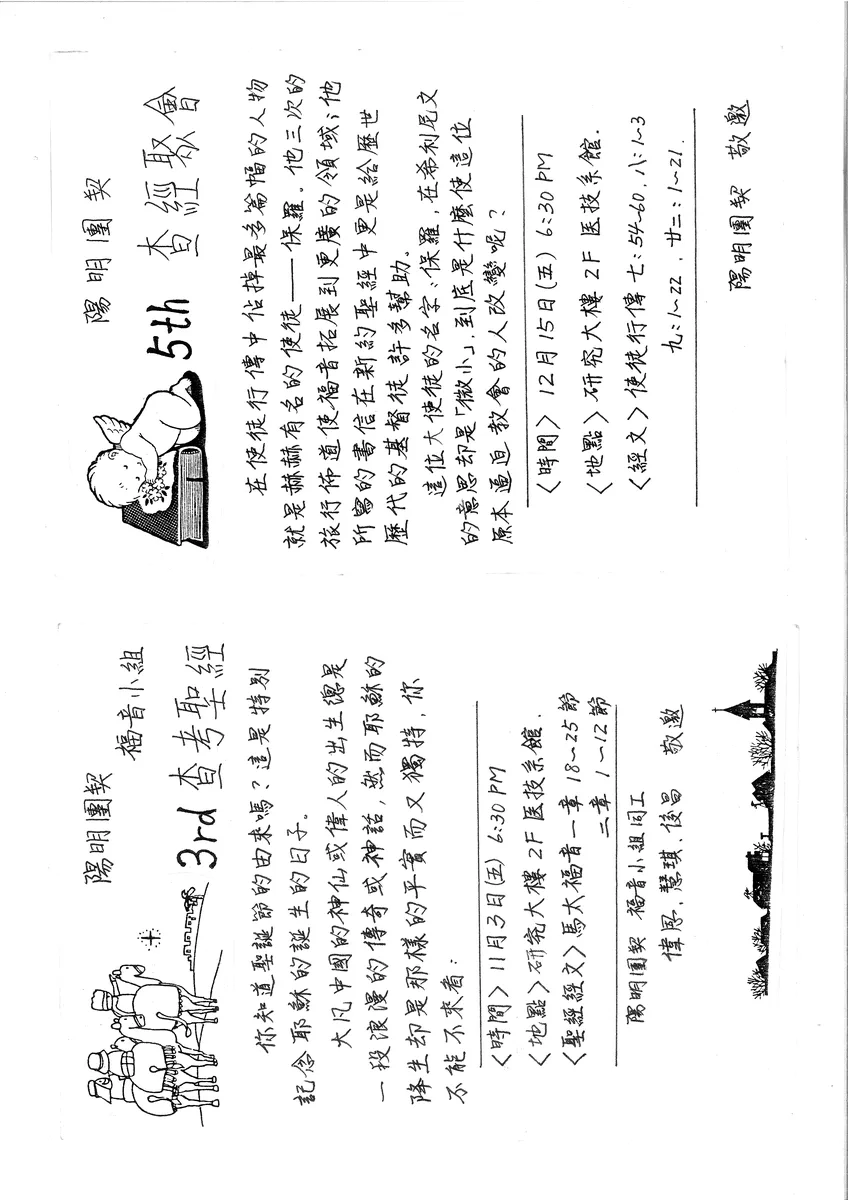 陽明團契
福音小組
3rd 查考聖經
你知道聖誕節的由來嗎？這是特別
記念耶穌的誕生的日子。
大凡中國的神仙或偉人的出生總是
一段浪漫的傳奇或神話，然而耶穌的
降生却是那樣的平實而又獨特，你
不能不來看：
〈時間〉11月3日(五) 6:30 PM
〈地點〉研究大樓 2F 医技系館.
〈聖經經文〉馬太福音一章 18~25 節
二章 1~12 節
陽明團契 福音小組同工
偉恩、慧琪、俊昌 敬邀
陽明團契
5th 查經聚會
在使徒行傳中佔掉最多篇幅的人物
就是赫赫有名的使徒——保羅。他三次的
旅行佈道使福音拓展到更廣的領域；他
所寫的書信在新約聖經中更是給歷世
歷代的基督徒許多幫助。
這位大使徒的名字：保羅，在希利尼文
的意思却是「微小」，到底是什麼使這位
原本逼迫教會的人改變呢？
〈時間〉12月15日(五) 6:30 PM
〈地點〉研究大樓 2F 医技系館.
〈經文〉使徒行傳 七：54~60，八：1~3
九：1~22，廿二：1~21.
陽明團契 敬邀